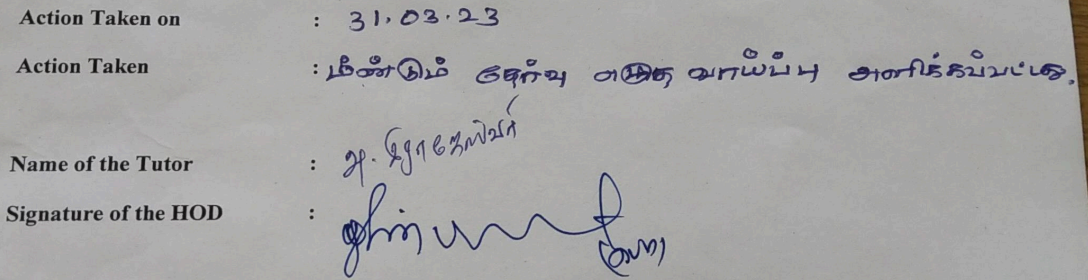 Action Taken on : 31.03.23
Action Taken : மீண்டும் தேர்வு எழுத வாய்ப்பு அளிக்கப்பட்டது.
Name of the Tutor :
Signature of the HOD :